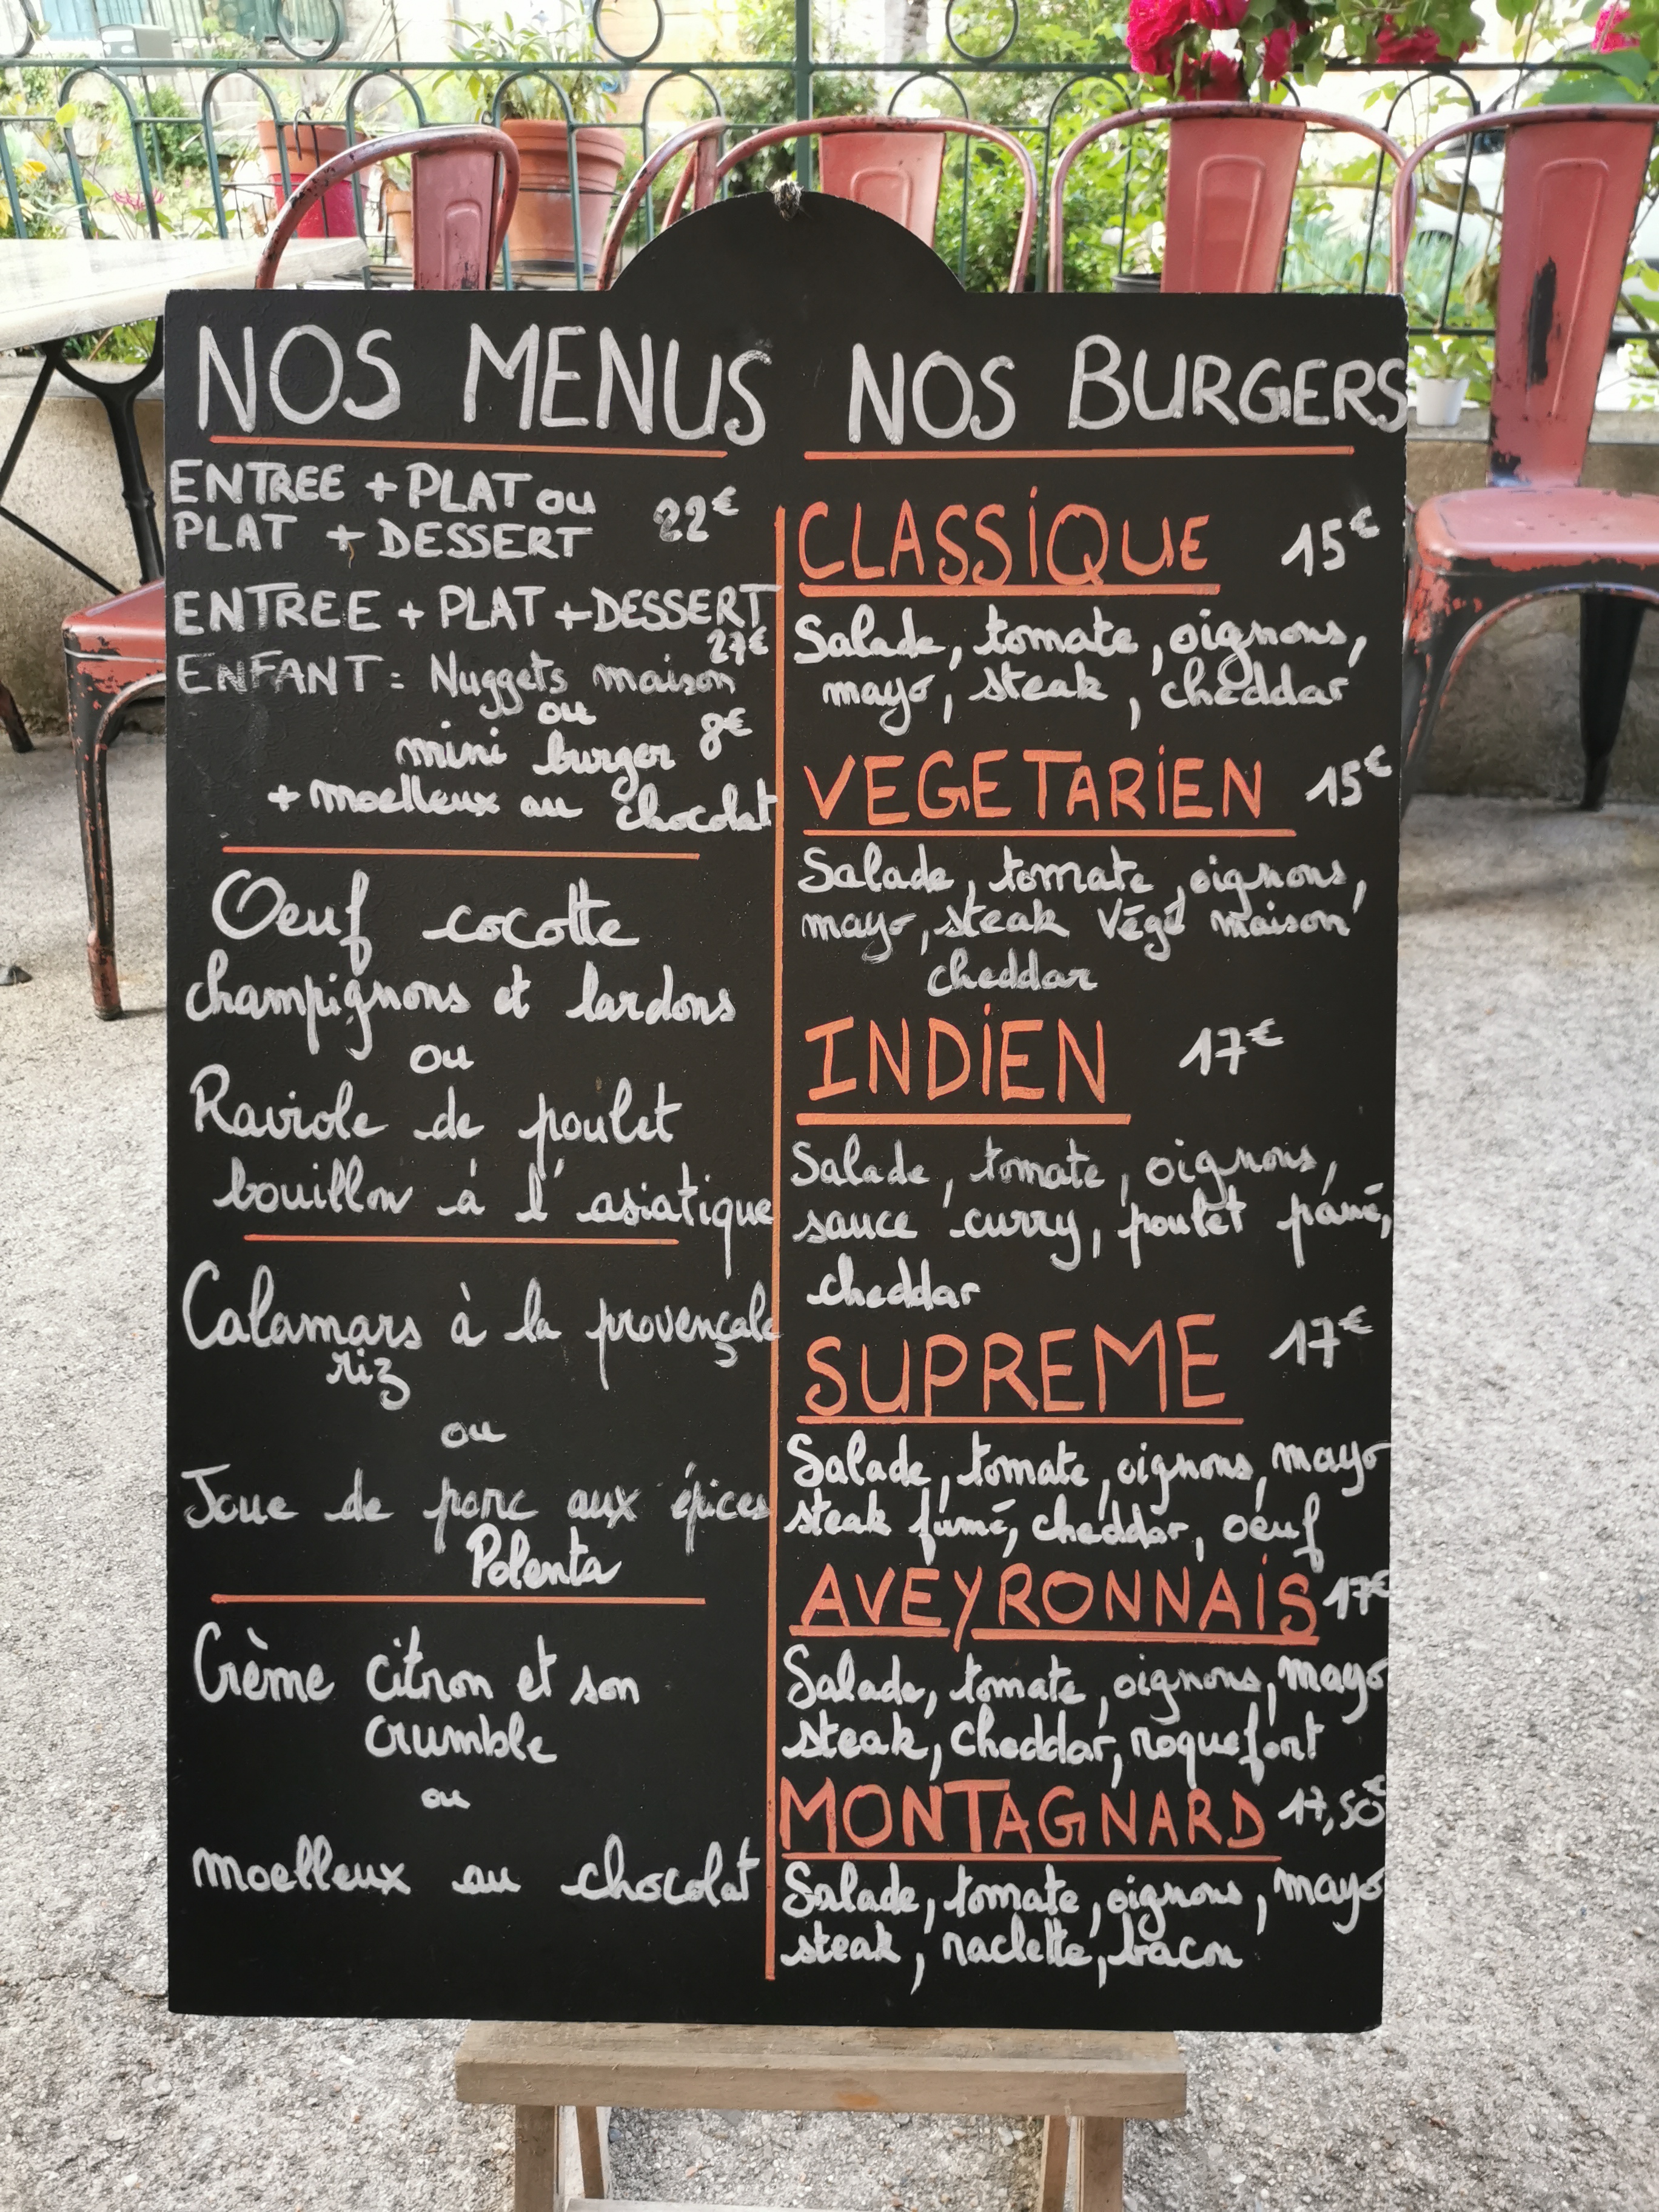 NOS MENUS
ENTREE + PLAT ou
PLAT + DESSERT 22€
ENTREE + PLAT + DESSERT
27€
ENFANT : Nuggets maison
ou
mini burger 8€
+ moelleux au chocolat
Oeuf cocotte
champignons et lardons
ou
Raviole de poulet
bouillon à l'asiatique
Calamars à la provençale
riz
ou
Joue de porc aux épices
Polenta
Crème citron et son
crumble
ou
moelleux au chocolat
NOS BURGERS
CLASSIQUE 15€
Salade, tomate, oignons,
mayo, steak, cheddar
VEGETARIEN 15€
Salade, tomate, oignons,
mayo, steak végé maison
cheddar
INDIEN 17€
Salade, tomate, oignons,
sauce curry, poulet pané,
cheddar
SUPREME 17€
Salade, tomate, oignons, mayo
steak fumé, cheddar, oeuf
AVEYRONNAIS 17€
Salade, tomate, oignons, mayo
steak, cheddar, roquefort
MONTAGNARD 17,50€
Salade, tomate, oignons, mayo
steak, raclette, bacon